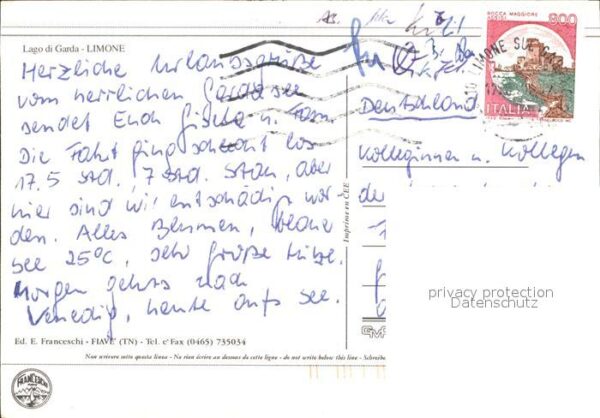 Lago di Garda - LIMONE
Herzliche Urlaubsgrüße
vom herrlichen Gardasee
sendet Euch Gisela u. Fam.
Die Fahrt ging schlecht los
17.5 Std. 7 Std. Stau, aber
hier sind wir entschädigt wor
den. Alles Blumen, blauer
See 25°C, sehr große Hitze.
Morgen gehts nach
Venedig, heute aufs See.
Ed. E. Franceschi - FIAVÈ (TN) - Tel. e Fax (0465) 735034
Non scrivere sotto questa linea - Ne rien écrire au dessous de cette ligne - do not write below this line - Schreibe
FRANCESCHI
Imprime en CEE
ROCCA MAGGIORE
ASSISI
800
ITALIA
LIMONE SUL GARDA
Deutschland
Kolleginnen u. Kollegen
de
privacy protection
Datenschutz